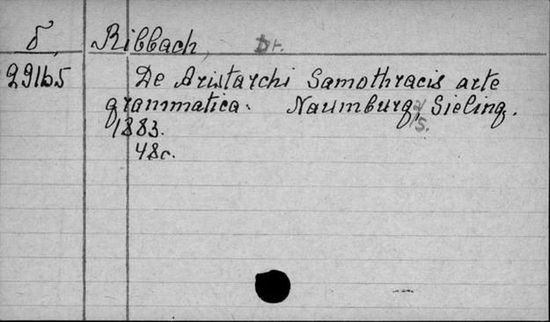 δ, Ribbach, Dr.
29165 De Aristarchi Samothracis arte
grammatica. Naumburg, Sieling.
1883.
48c.